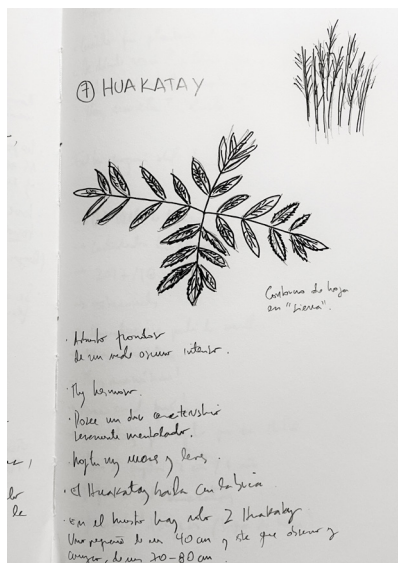 7 HUAKATAY
Contorno de hoja
en "sierra".
· Arbusto frondoso
de un verde oscuro intenso.
· Muy hermoso.
· Posee un olor característico
levemente mentolado.
· Hojas muy y leves.
· El Huakatay baila con la brisa.
· En el huerto hay solo 2 Huakatay
Una pequeña de unos 40 cm y este que observo y
, de unos 70-80 cm